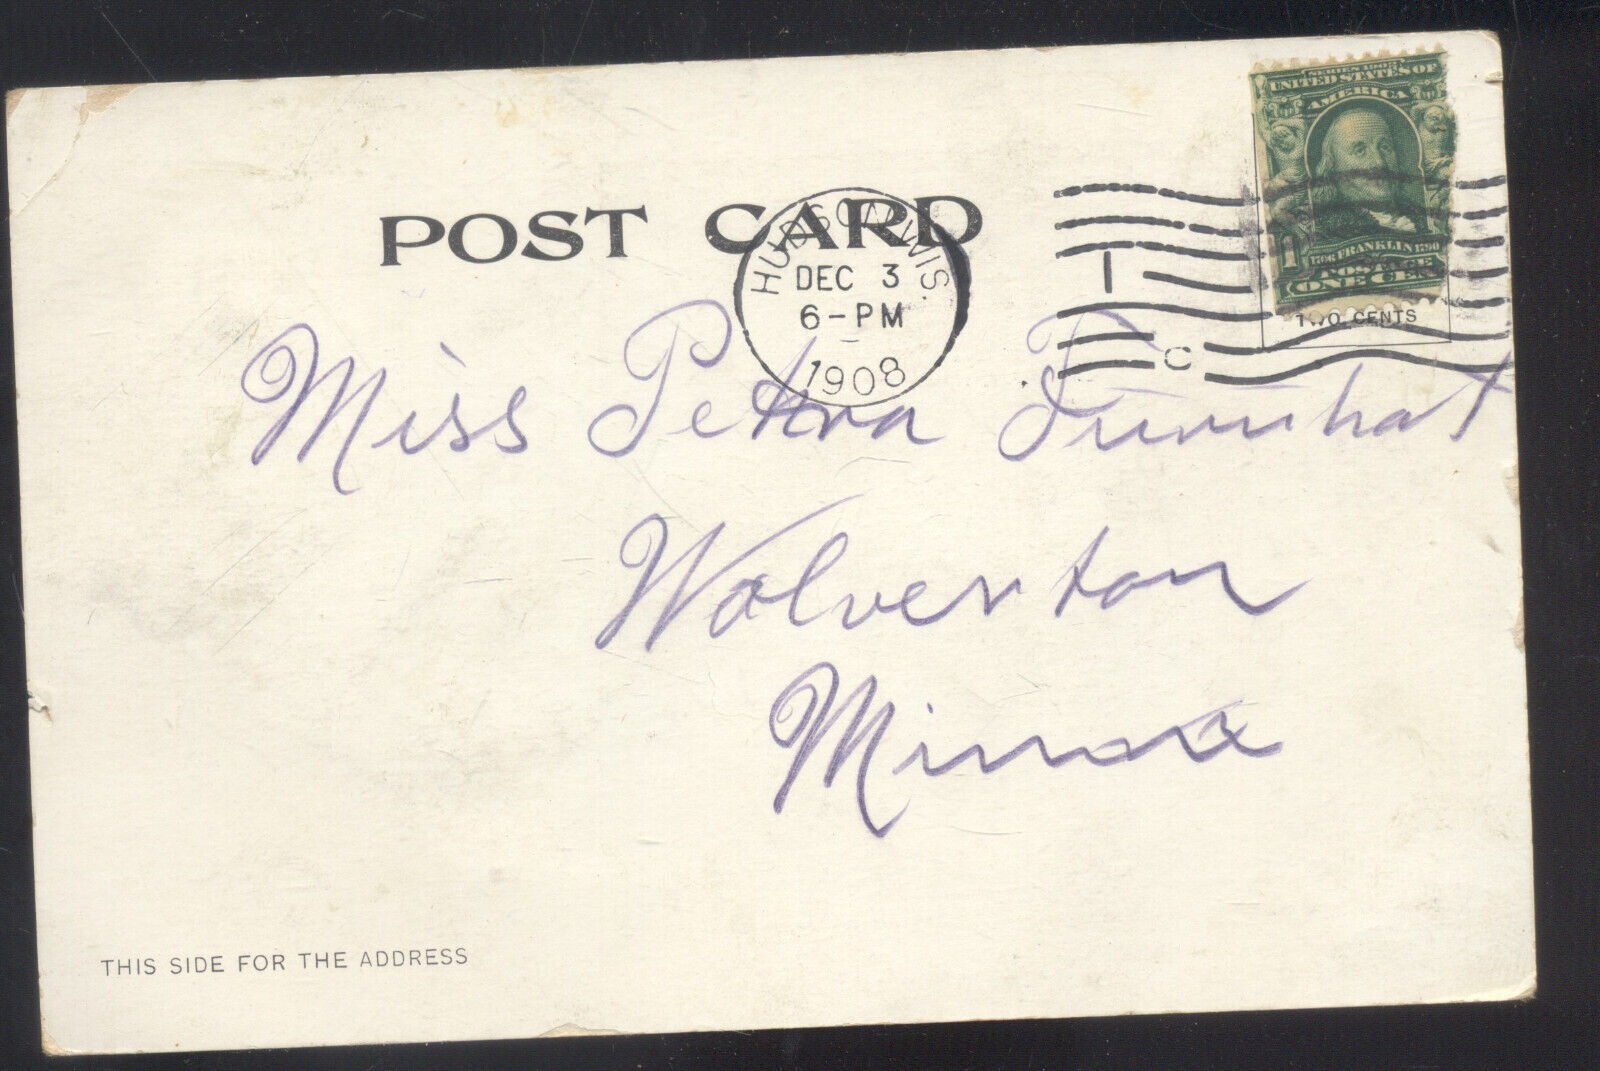 POST CARD
HUDSON, WIS.
DEC 3
6-PM
1908
1
C
SERIES 1902
UNITED STATES OF
AMERICA
1
1706 FRANKLIN 1790
ONE
TWO CENTS
Miss Petra
Wolverton
Minn
THIS SIDE FOR THE ADDRESS